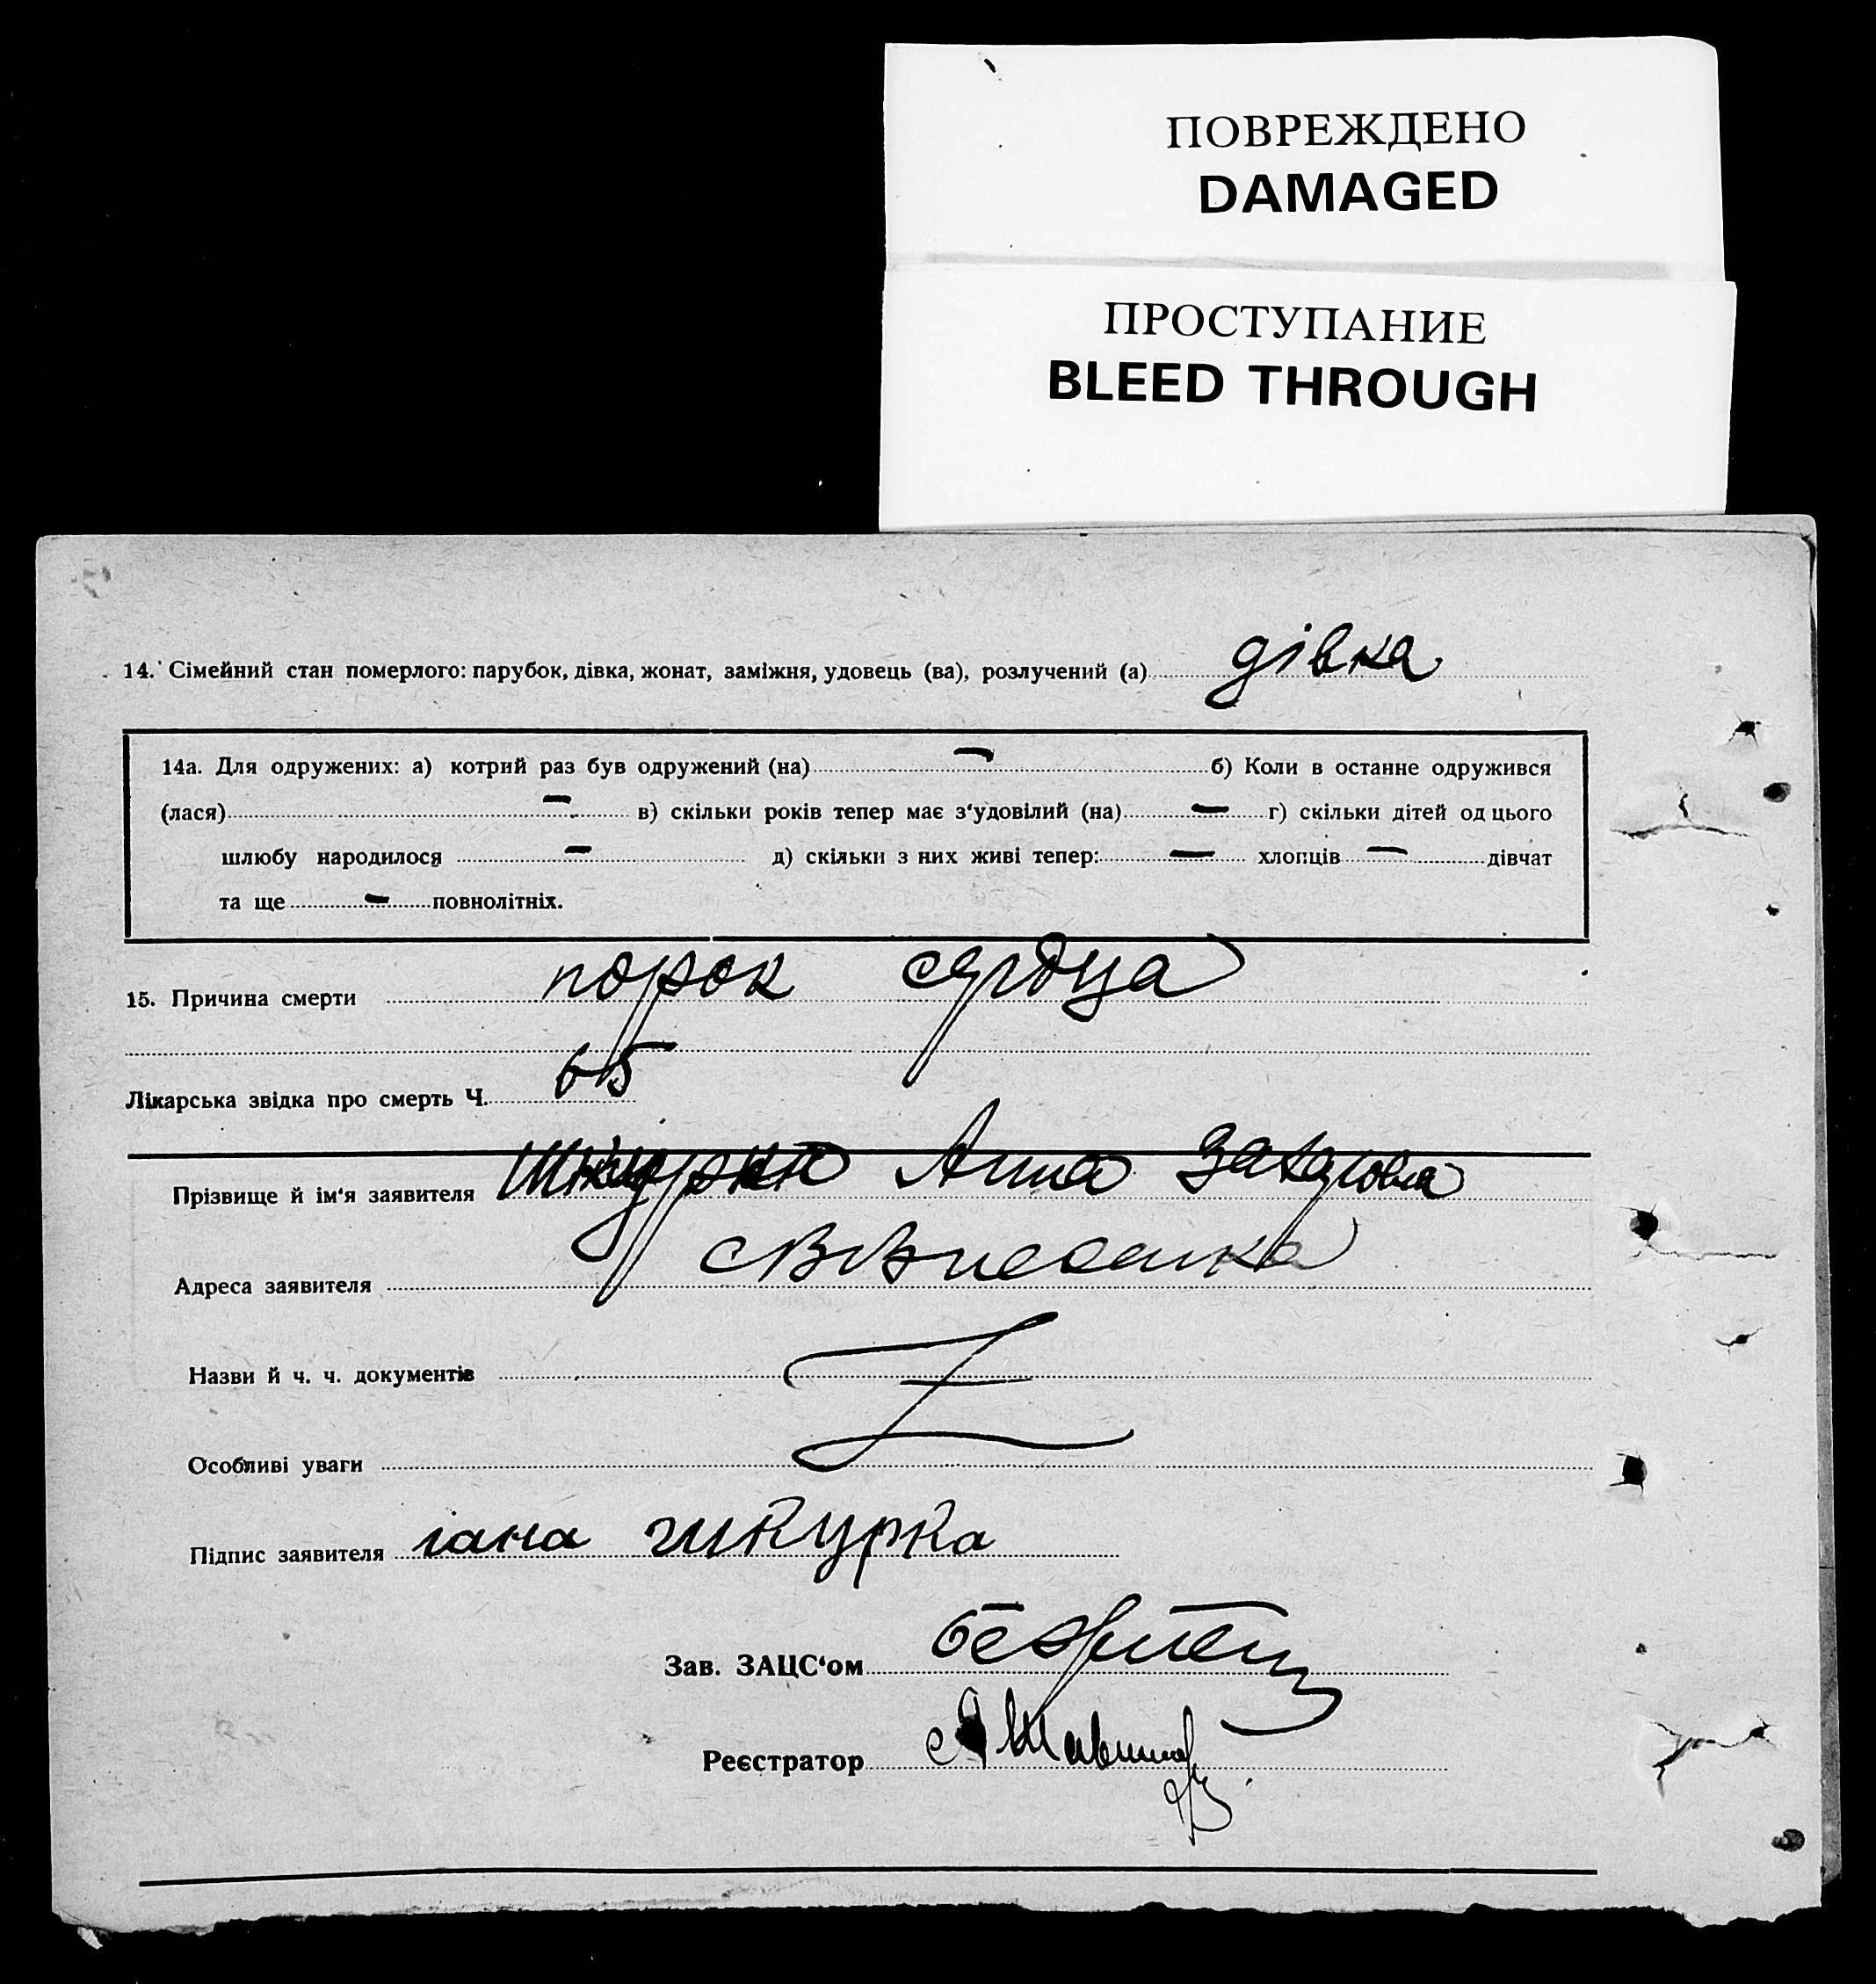 ПОВРЕЖДЕНО
DAMAGED
ПРОСТУПАНИЕ
BLEED THROUGH
14. Сімейний стан померлого: парубок, дівка, жонат, заміжня, удовець (ва), розлучений (а) дівка
14а. Для одружених: а) котрий раз був одружений (на) — б) Коли в останне одружився
(лася) — в) скільки років тепер має з‘удовілий (на) — г) скільки дітей од цього
шлюбу народилося — д) скільки з них живі тепер: — хлопців — дівчат
та ще — повнолітніх.
15. Причина смерти порок сердца
Лікарська звідка про смерть Ч. 65
Прізвище й ім‘я заявителя Анна Захаровна
Адреса заявителя
Назви й ч. ч. документів
Особливі уваги
Підпис заявителя гана шкурка
Зав. ЗАЦС‘ом
Реєстратор